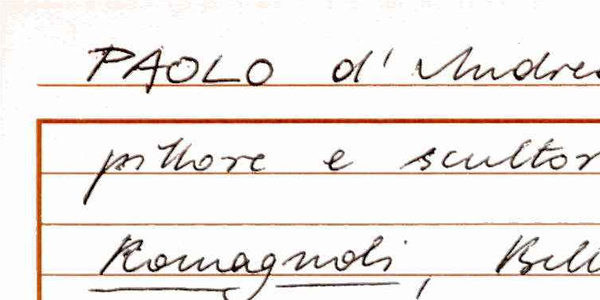 PAOLO d'Andrea
pittore e scultor
Romagnoli, Bell